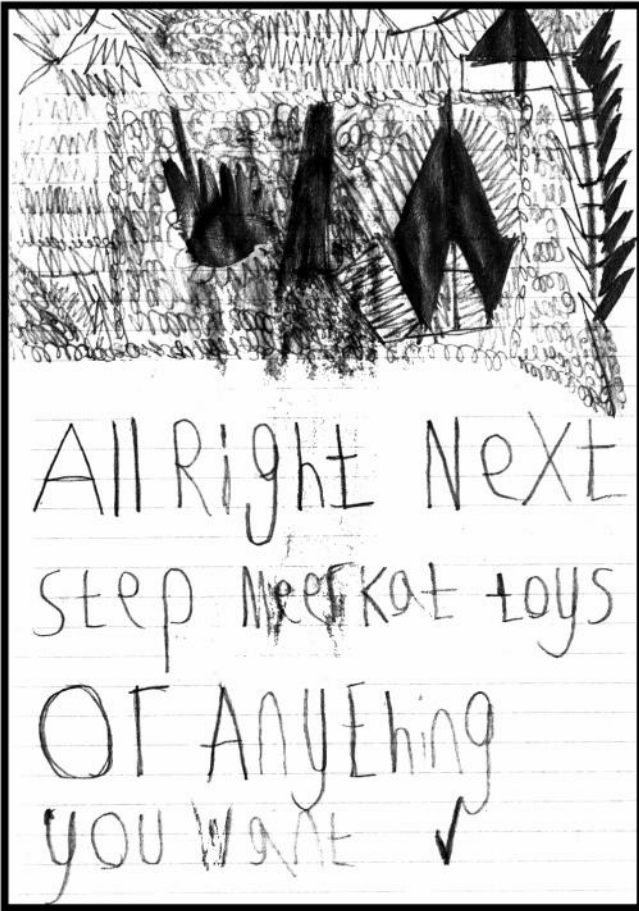 All Right Next
step Meerkat toys
Or Anything
you want ✓